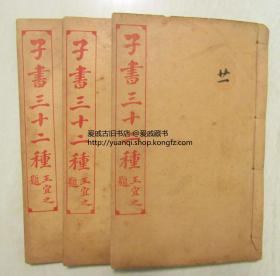 子書三十二種
王宜之題
子書三十二種
王宜之題
子書三十二種
王宜之題
廿一
爱威古旧书店@爱威藏书
http://yuanqi.shop.kongfz.com